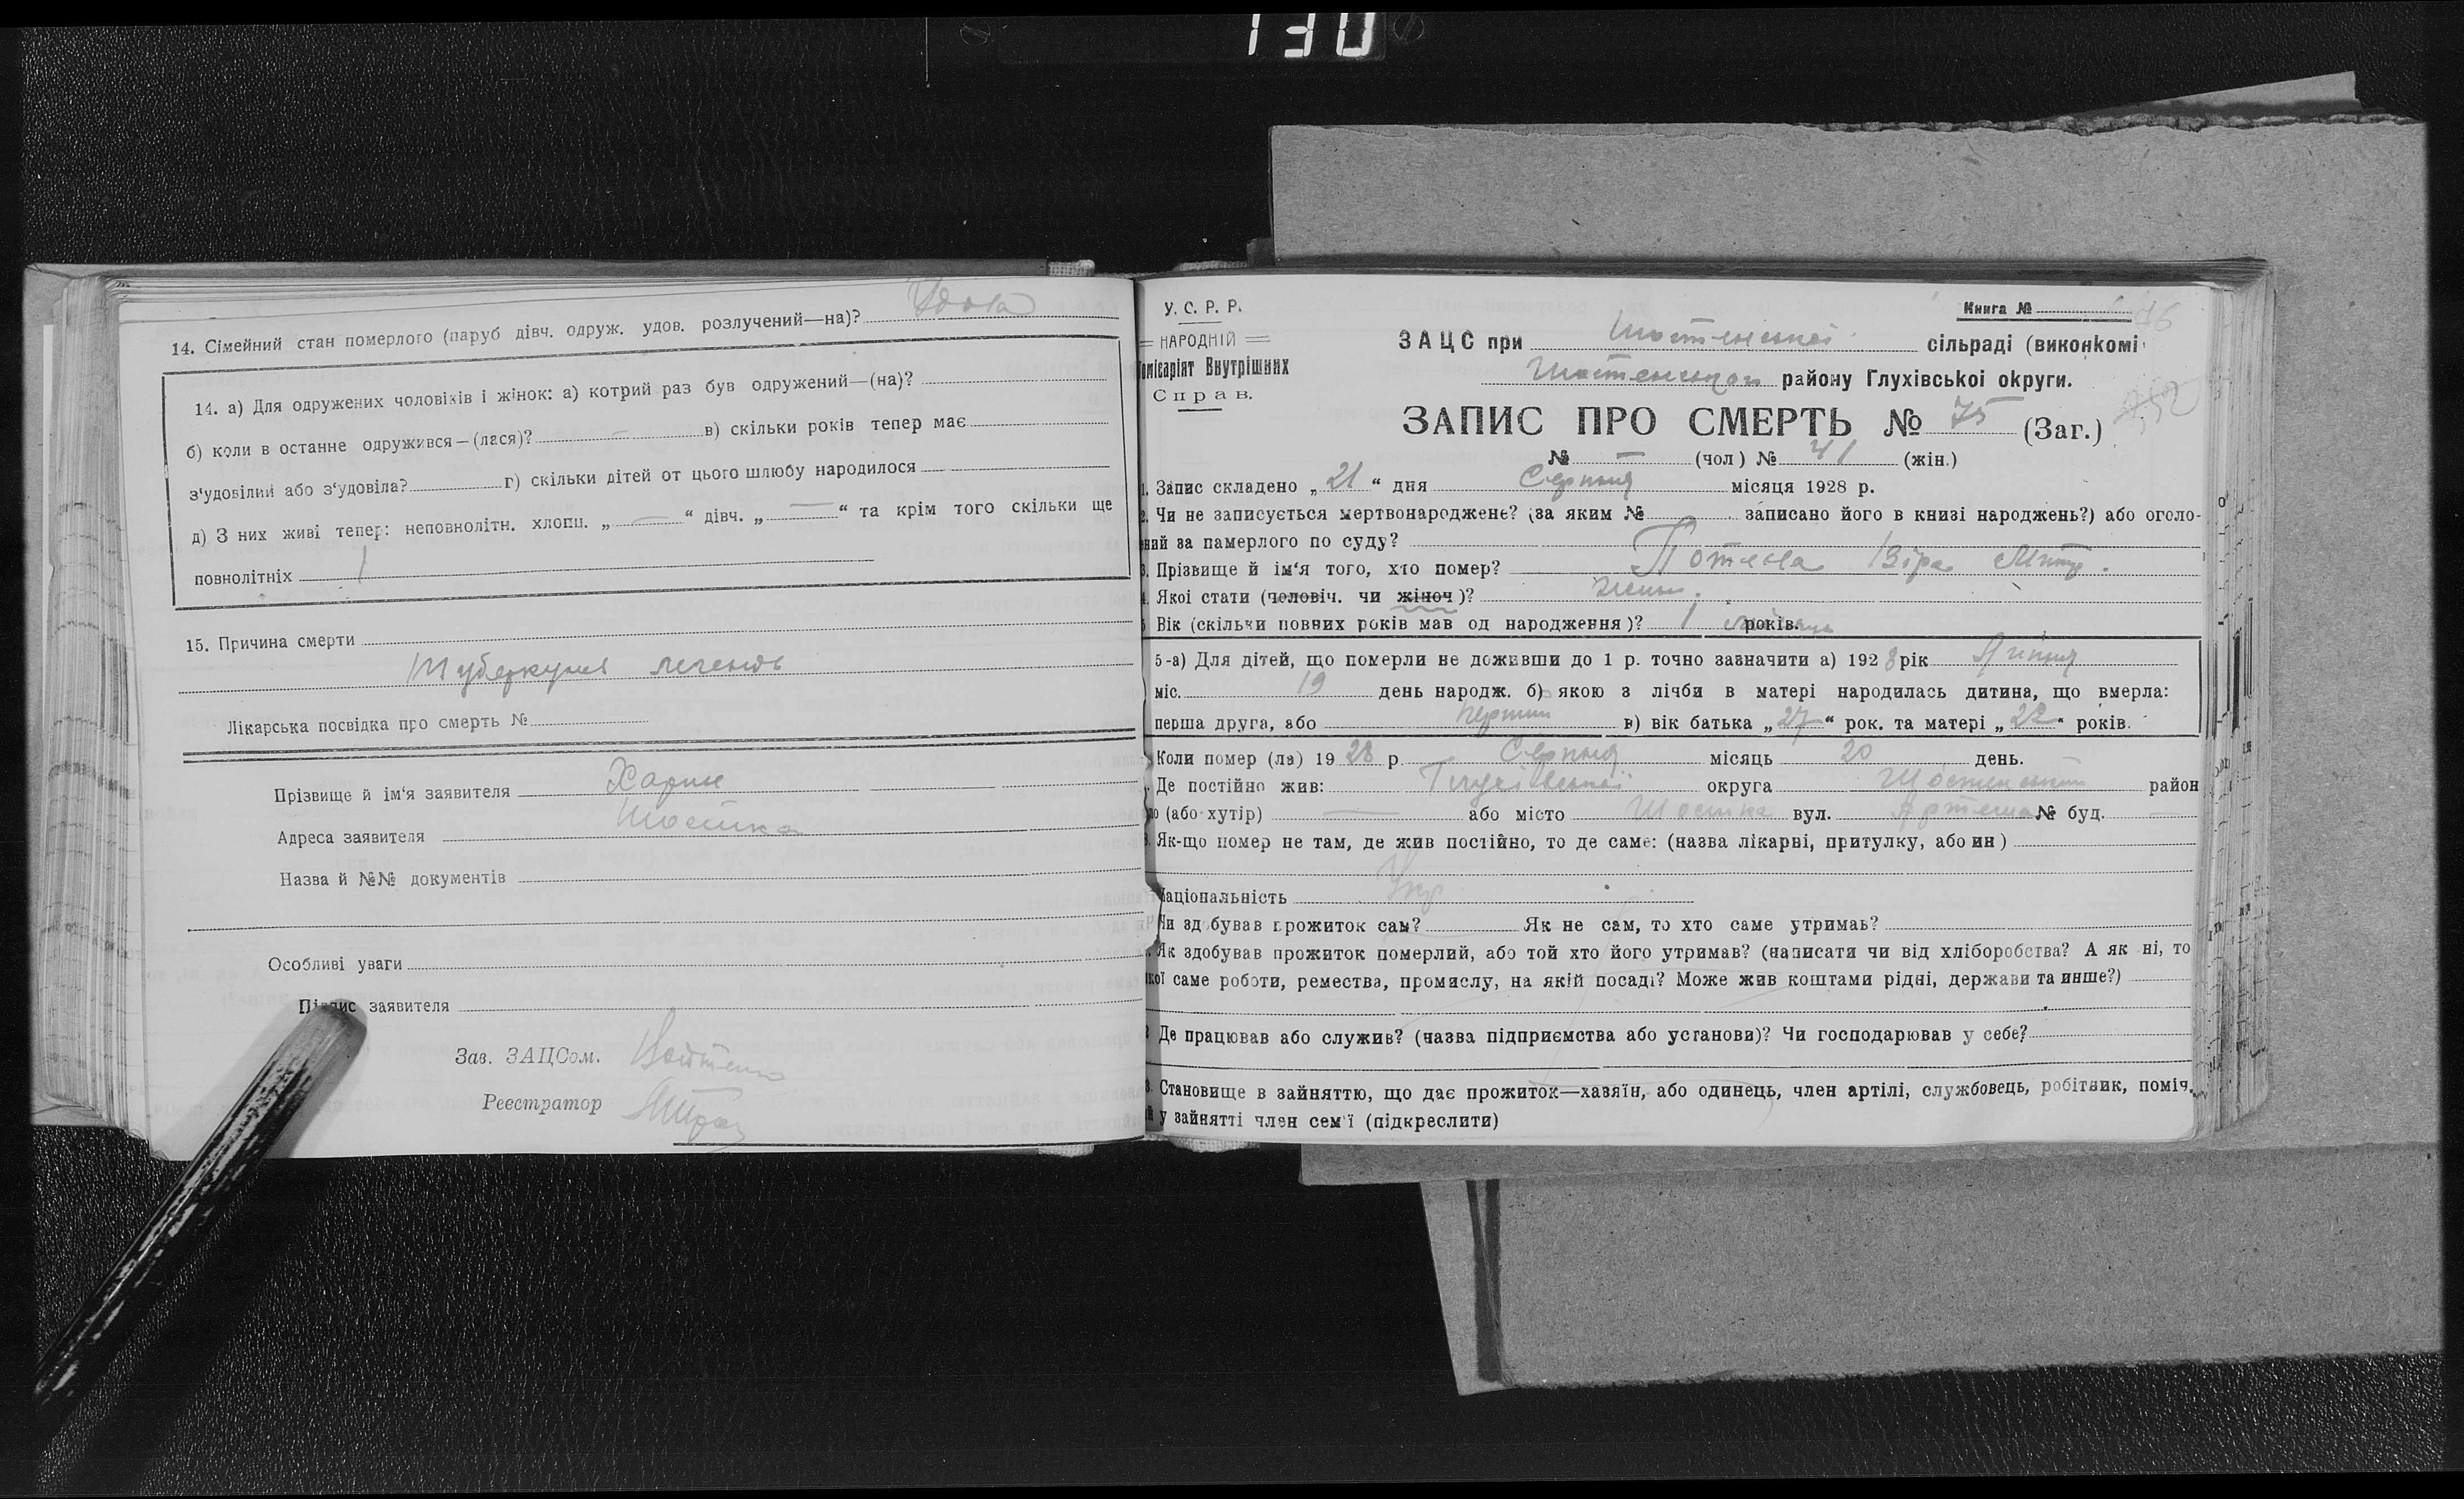 130
14. Сімейний стан померлого (паруб дівч. одруж. удов. розлучений—на)? Удова
14. а) Для одружених чоловіків і жінок: а) котрий раз був одружений—(на)?
б) коли в останне одружився—(лася)? — в) скільки років тепер має
з'удовілий або з'удовіла? г) скільки дітей от цього шлюбу народилося
д) З них живі тепер: неповнолітн. хлопц. „ — “ дівч. „ — “ та крім того скільки ще
повнолітніх 1
15. Причина смерти
Туберкульоз легенів
Лікарська посвідка про смерть №
Прізвище й ім'я заявителя Харин
Адреса заявителя Шостка
Назва й №№ документів
Особливі уваги
Підпис заявителя
Зав. ЗАЦСом.
Реєстратор
У. С. Р. Р.
НАРОДНІЙ
Комісаріят Внутрішних
Справ.
Книга №
76
ЗАЦС при Шостенської сільраді (виконкомі
Шостенського району Глухівської округи.
ЗАПИС ПРО СМЕРТЬ № 75 (Заг.)
№ — (чол) № 41 (жін.)
1. Запис складено „ 21 “ дня Серпня місяця 1928 р.
2. Чи не записується мертвонароджене? (за яким № записано його в книзі народжень?) або оголо-
ний за памерлого по суду?
3. Прізвище й ім'я того, хто помер? Віра
4. Якої стати (человіч. чи жіноч)? жін.
5 Вік (скільки повних років мав од народження)? 1 місяць років.
5-а) Для дітей, що померли не доживши до 1 р. точно зазначити а) 1928 рік Липня
міс. 19 день народж. б) якою з лічби в матері народилась дитина, що вмерла:
перша друга, або першою в) вік батька „ 27 “ рок. та матері „ 22 “ років.
Коли помер (ла) 19 28 р Серпня місяць 20 день.
Де постійно жив: Глухівської округа Шостенський район
ло (або хутір) — або місто Шостка вул. Артема № буд. —
Як-що помер не там, де жив постійно, то де саме: (назва лікарні, притулку, або ин)
Національність Укр.
Чи здобував прожиток сам? Як не сам, то хто саме утримав?
Як здобував прожиток померлий, або той хто його утримав? (написати чи від хліборобства? А як ні, то
якої саме роботи, ремества, промислу, на якій посаді? Може жив коштами рідні, держави та инше?)
Де працював або служив? (назва підприємства або установи)? Чи господарював у себе?
3. Становище в зайняттю, що дає прожиток—хазяїн, або одинець, член артілі, службовець, робітник, поміч.
й у зайнятті член сем'ї (підкреслити)